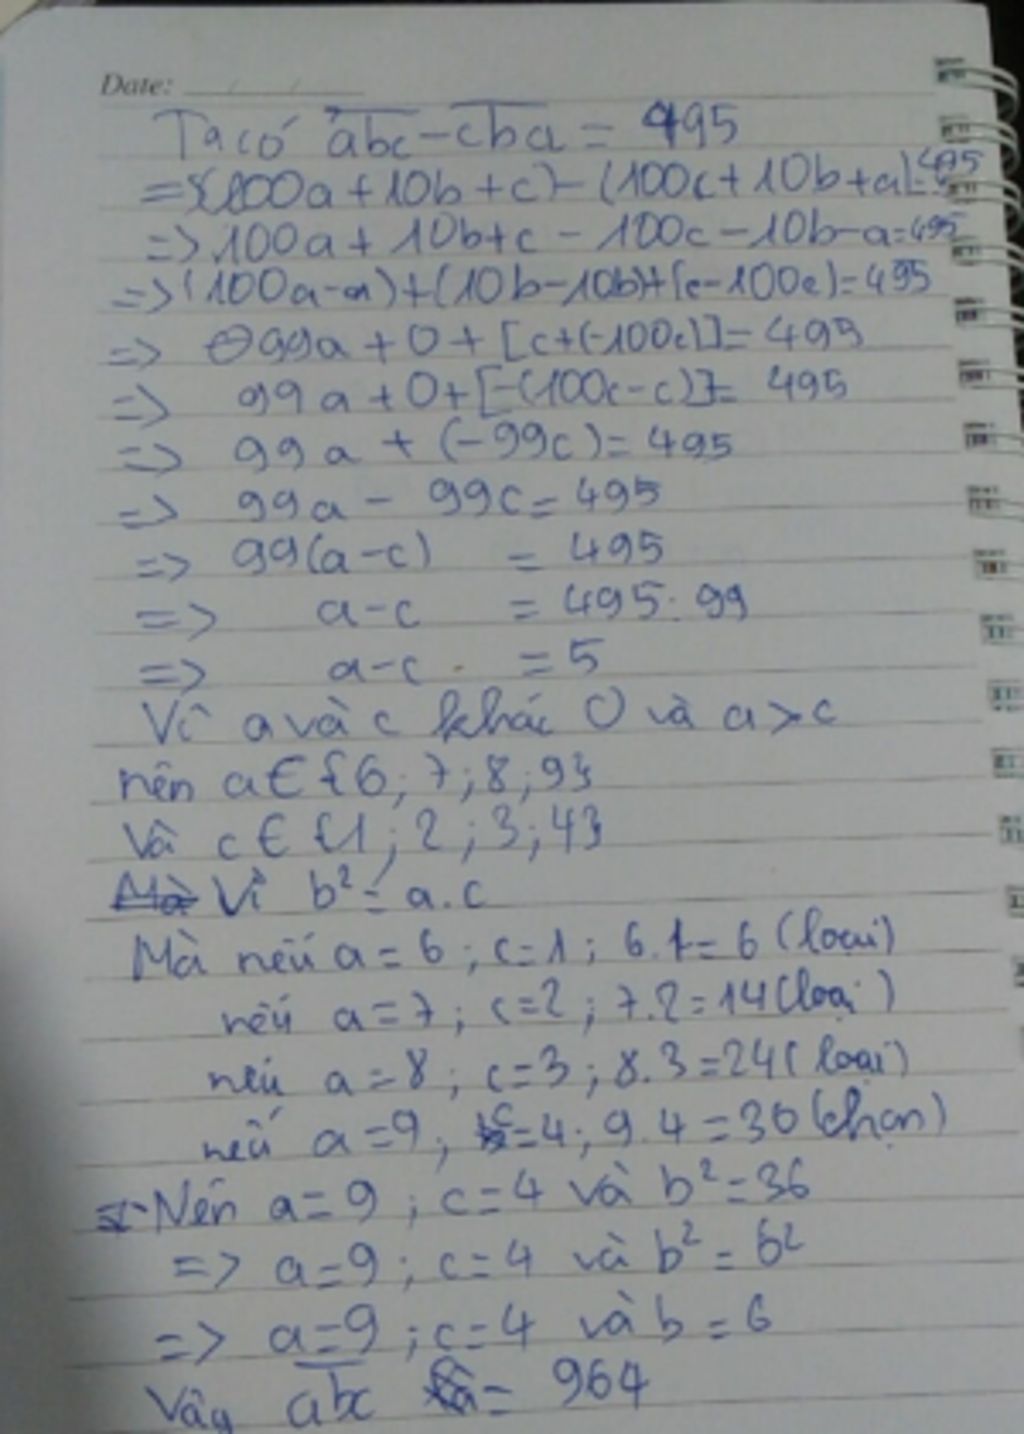 Date: / /
Ta có abc - cba = 495
=> (100a + 10b + c) - (100c + 10b + a) = 495
=> 100a + 10b + c - 100c - 10b - a = 495
=> (100a - a) + (10b - 10b) + (c - 100c) = 495
=> 99a + 0 + [c + (-100c)] = 495
=> 99a + 0 + [-(100c - c)] = 495
=> 99a + (-99c) = 495
=> 99a - 99c = 495
=> 99(a - c) = 495
=> a - c = 495 : 99
=> a - c = 5
Vì a và c khác 0 và a > c
nên a ∈ {6; 7; 8; 9}
Và c ∈ {1; 2; 3; 4}
Vì b² = a.c
Mà nếu a = 6; c = 1; 6.1 = 6 (loại)
nếu a = 7; c = 2; 7.2 = 14 (loại)
nếu a = 8; c = 3; 8.3 = 24 (loại)
nếu a = 9; c = 4; 9.4 = 36 (chọn)
Nên a = 9; c = 4 và b² = 36
=> a = 9; c = 4 và b² = 6²
=> a = 9; c = 4 và b = 6
Vậy abc = 964